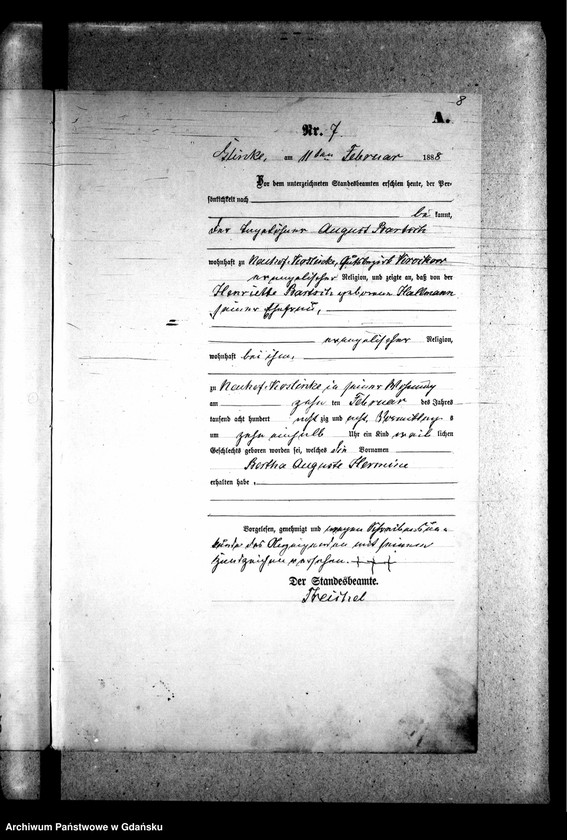 8
A.
Nr. 7
am 11ten Februar 1888
Vor dem unterzeichneten Standesbeamten erschien heute, der Per-
sönlichkeit nach
be kannt,
der Tagelöhner August Bartsch
wohnhaft zu Neuhof-Koslinke, Gutsbezirk
evangelischer Religion, und zeigte an, daß von der
Henriette Bartsch geborene Hallmann
seiner Ehefrau,
evangelischer Religion,
wohnhaft bei ihm,
zu Neuhof-Koslinke in seiner Wohnung
am zehn ten Februar des Jahres
tausend acht hundert acht zig und acht, Vormittags
um zehn einhalb Uhr ein Kind weib lichen
Geschlechts geboren worden sei, welches die Vornamen
Bertha Auguste Hermine
erhalten habe.
Vorgelesen, genehmigt und wegen Schreibensun-
kunde des Anzeigenden mit seinem
Handzeichen versehen. +++
Der Standesbeamte.
Treichel
Archiwum Państwowe w Gdańsku